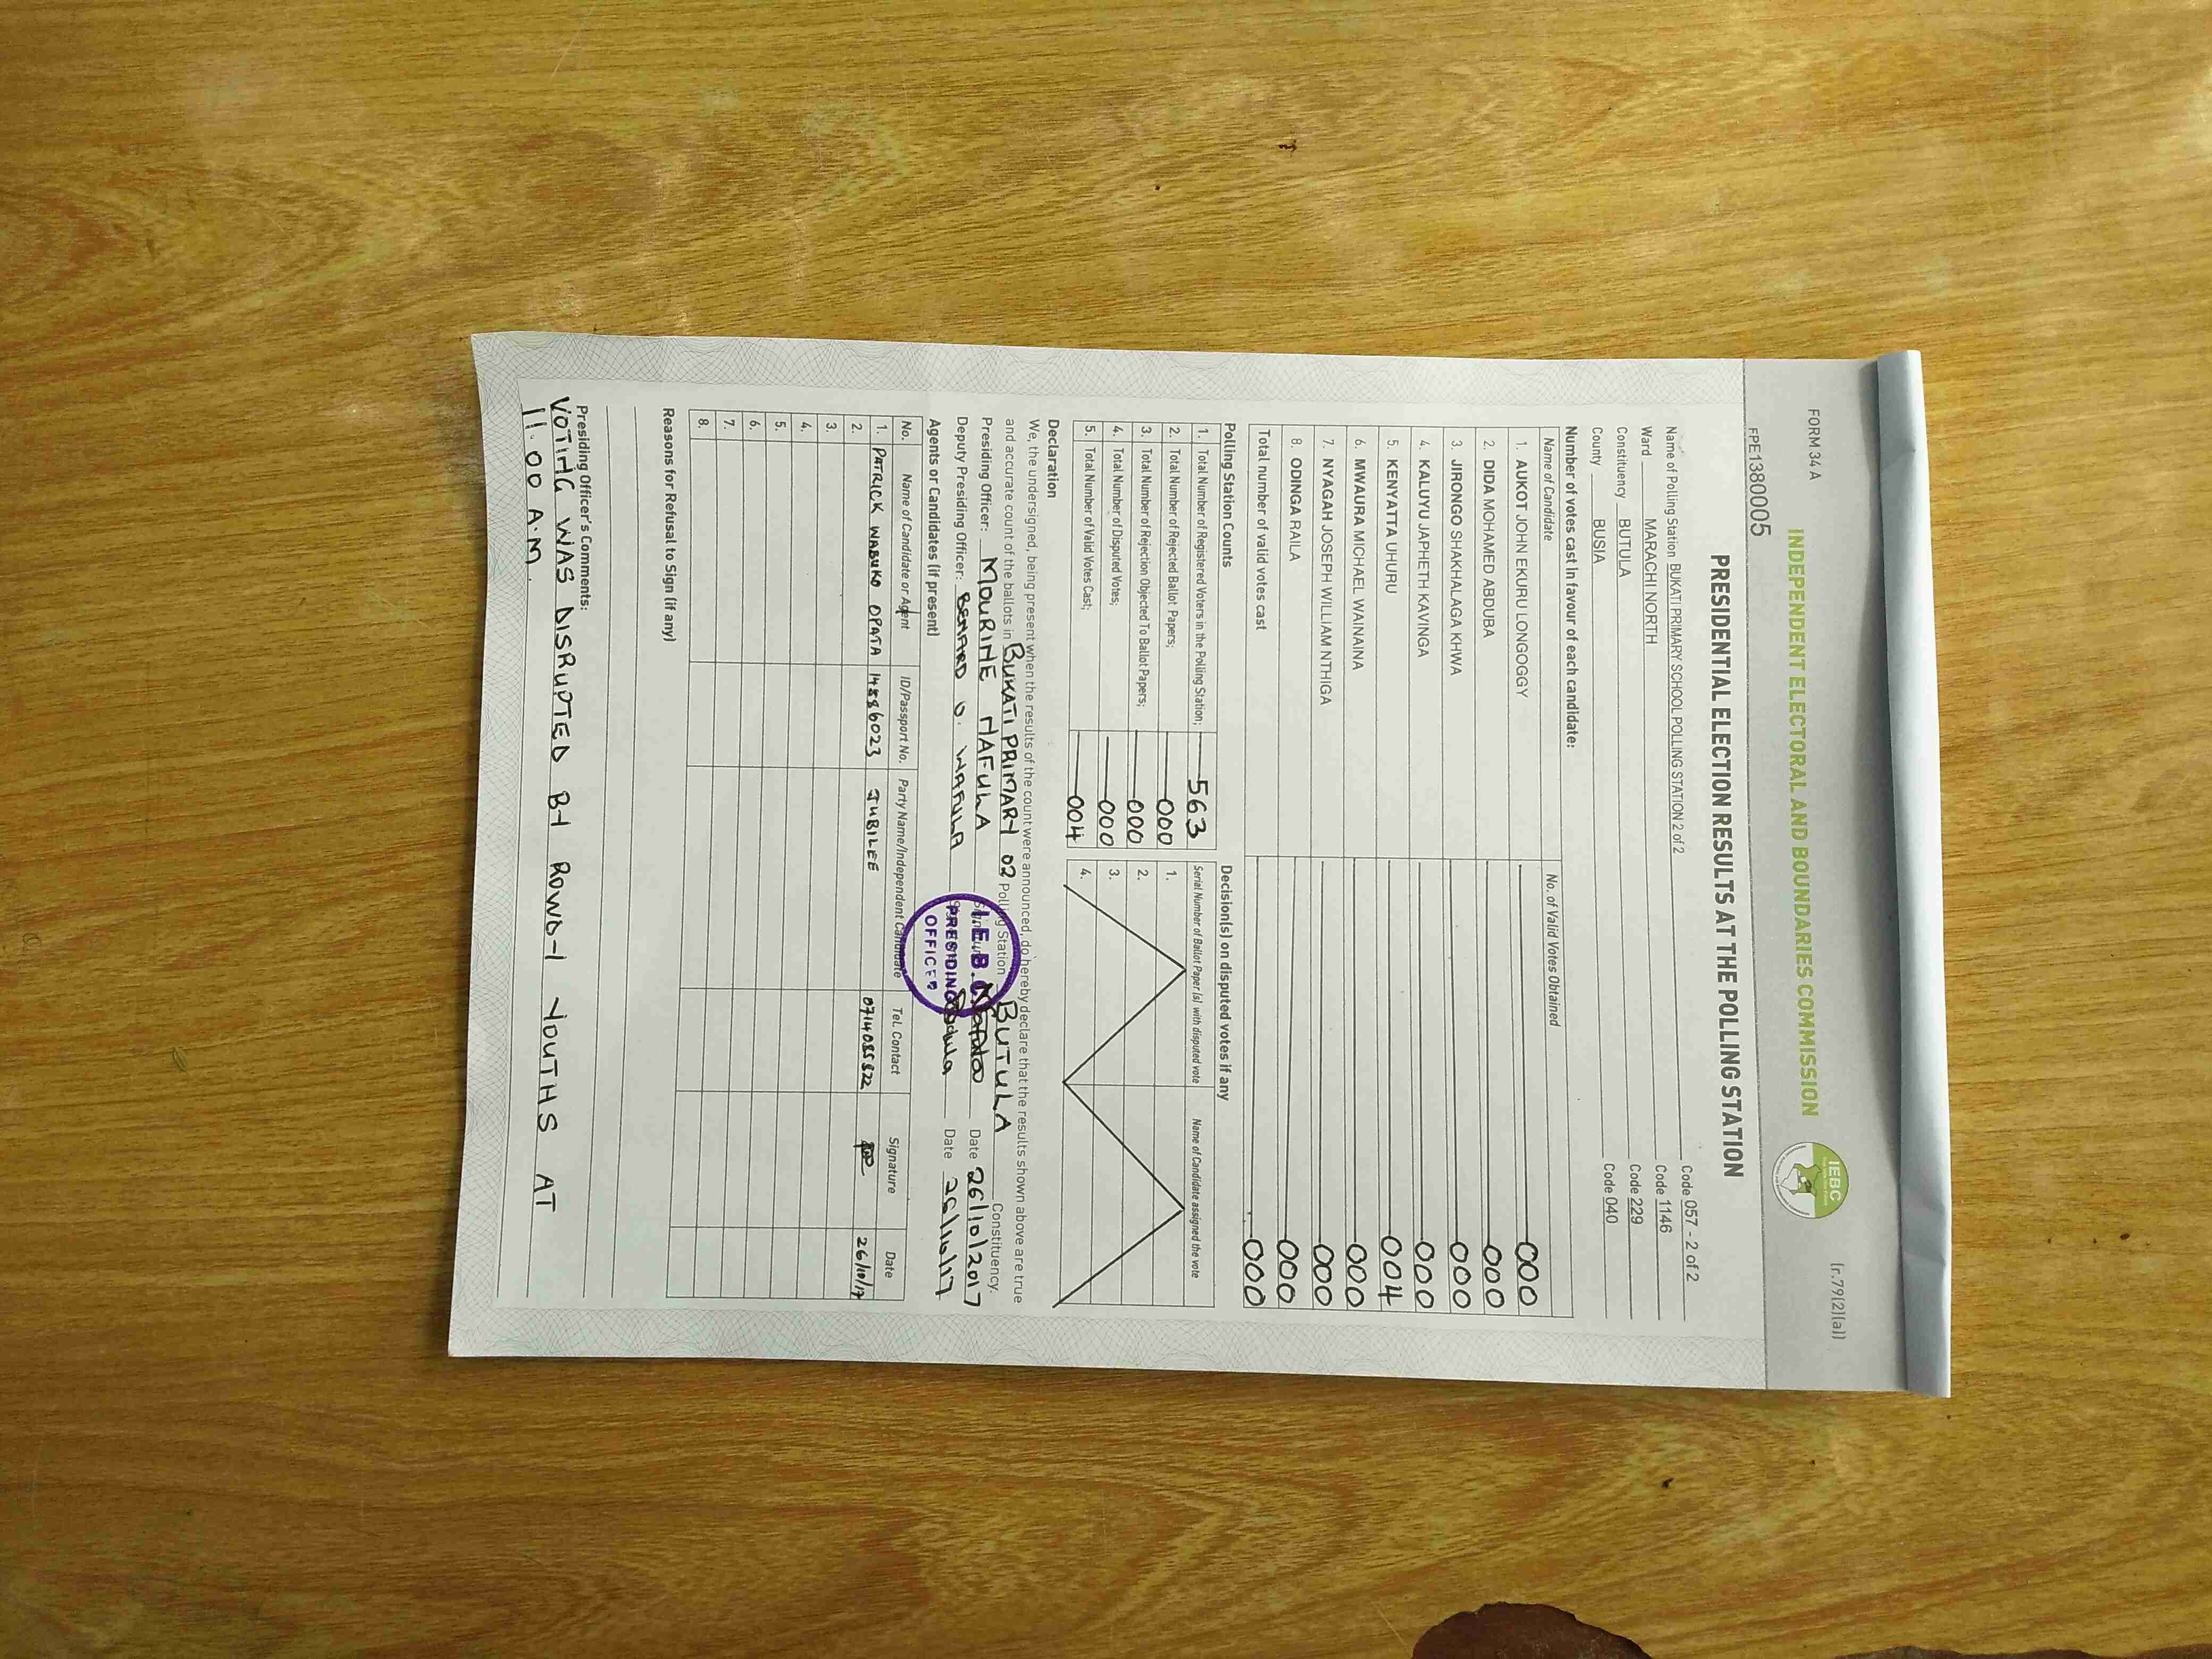 FORM 34 A
(r.79(2)(a))
INDEPENDENT ELECTORAL AND BOUNDARIES COMMISSION
IEBC
FPE1380005
PRESIDENTIAL ELECTION RESULTS AT THE POLLING STATION
Name of Polling Station BUKATI PRIMARY SCHOOL POLLING STATION 2 of 2 Code 057 - 2 of 2
Ward MARACHI NORTH Code 1146
Constituency BUTULA Code 229
County BUSIA Code 040
Number of votes cast in favour of each candidate:
Name of Candidate No. of Valid Votes Obtained
1. AUKOT JOHN EKURU LONGOGGY 000
2. DIDA MOHAMED ABDUBA 000
3. JIRONGO SHAKHALAGA KHWA 000
4. KALUYU JAPHETH KAVINGA 000
5. KENYATTA UHURU 004
6. MWAURA MICHAEL WAINAINA 000
7. NYAGAH JOSEPH WILLIAM NTHIGA 000
8. ODINGA RAILA 000
Total number of valid votes cast 000
Polling Station Counts Decision(s) on disputed votes if any
1. Total Number of Registered Voters in the Polling Station; 563 Serial Number of Ballot Paper (s) with disputed vote Name of Candidate assigned the vote
2. Total Number of Rejected Ballot Papers; 000 1.
3. Total Number of Rejection Objected To Ballot Papers; 000 2.
4. Total Number of Disputed Votes; 000 3.
5. Total Number of Valid Votes Cast; 004 4.
Declaration
We, the undersigned, being present when the results of the count were announced, do hereby declare that the results shown above are true
and accurate count of the ballots in BUKATI PRIMARY 02 Polling Station BUTULA Constituency.
Presiding Officer: MOURINE NAFULA Date 26/10/2017
Deputy Presiding Officer: BENARD O. WAFULA Date 26/10/17
I.E.B.C
PRESIDING
OFFICER
Agents or Candidates (if present)
No. Name of Candidate or Agent ID/Passport No. Party Name/Independent Candidate Tel. Contact Signature Date
1. PATRICK WABUKO OPATA 14886023 JUBILEE 0714085822 26/10/17
2.
3.
4.
5.
6.
7.
8.
Reasons for Refusal to Sign (if any)
Presiding Officer's Comments:
VOTING WAS DISRUPTED BY ROWDY YOUTHS AT
11.00 A.M.